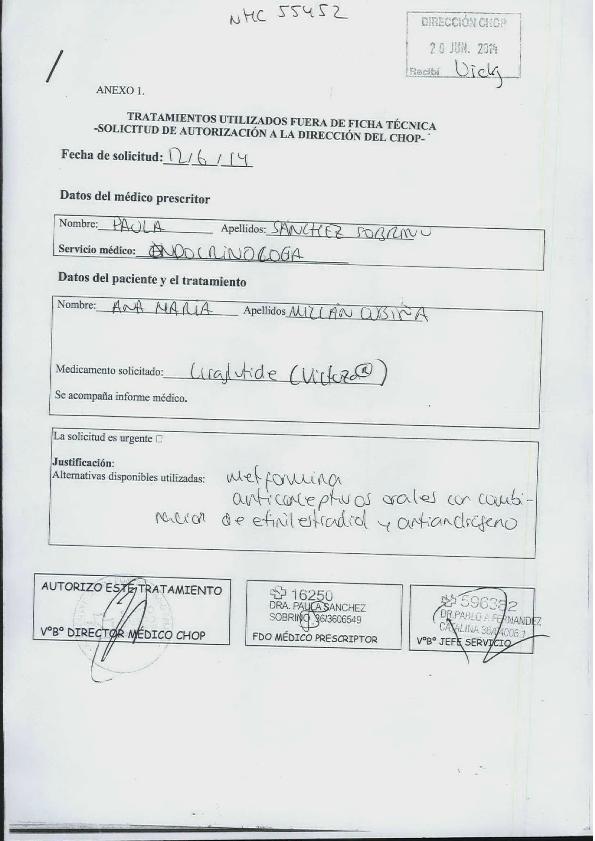 NHC 55452
DIRECCIÓN CHOP
20 JUN. 2014
Recibí Vicky
ANEXO 1.
TRATAMIENTOS UTILIZADOS FUERA DE FICHA TÉCNICA
-SOLICITUD DE AUTORIZACIÓN A LA DIRECCIÓN DEL CHOP-
Fecha de solicitud: 12/6/14
Datos del médico prescritor
Nombre: PAULA Apellidos: SÁNCHEZ SOBRINO
Servicio médico: ENDOCRINOLOGÍA
Datos del paciente y el tratamiento
Nombre: ANA MARÍA Apellidos MILLÁN
Medicamento solicitado: Liraglutide (Victoza®)
Se acompaña informe médico.
La solicitud es urgente □
Justificación:
Alternativas disponibles utilizadas: metformina
anticonceptivos orales con combi-
nacion de etinilestradiol y antiandrógeno
AUTORIZO ESTE TRATAMIENTO
VºBº DIRECTOR MÉDICO CHOP
16250
DRA. PAULA SANCHEZ
SOBRINO 36/3606549
FDO MÉDICO PRESCRIPTOR
596382
DR PABLO A FERNANDEZ
CATALINA
VºBº JEFE SERVICIO